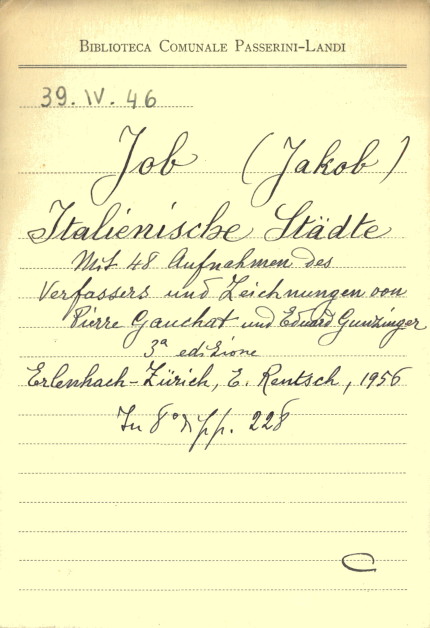 BIBLIOTECA COMUNALE PASSERINI-LANDI
39. IV. 46
Job (Jakob)
Italienische Städte
Mit 48 Aufnahmen des
Verfassers und Zeichnungen von
Pierre Gauchat und Eduard Gunzinger
3ª edizione
Erlenbach-Zürich, E. Rentsch, 1956
In 8° di pp. 228
C